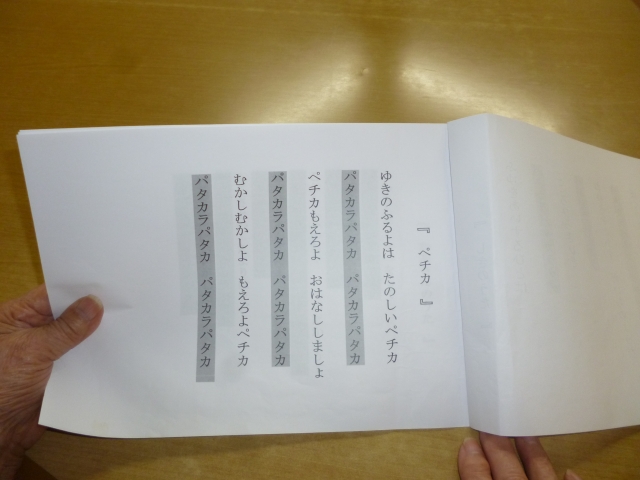 『 ペチカ 』
ゆきのふるよは　たのしいペチカ
パタカラパタカ　パタカラパタカ
ペチカもえろよ　おはなししましょ
パタカラパタカ　パタカラパタカ
むかしむかしよ　もえろよペチカ
パタカラパタカ　パタカラパタカ